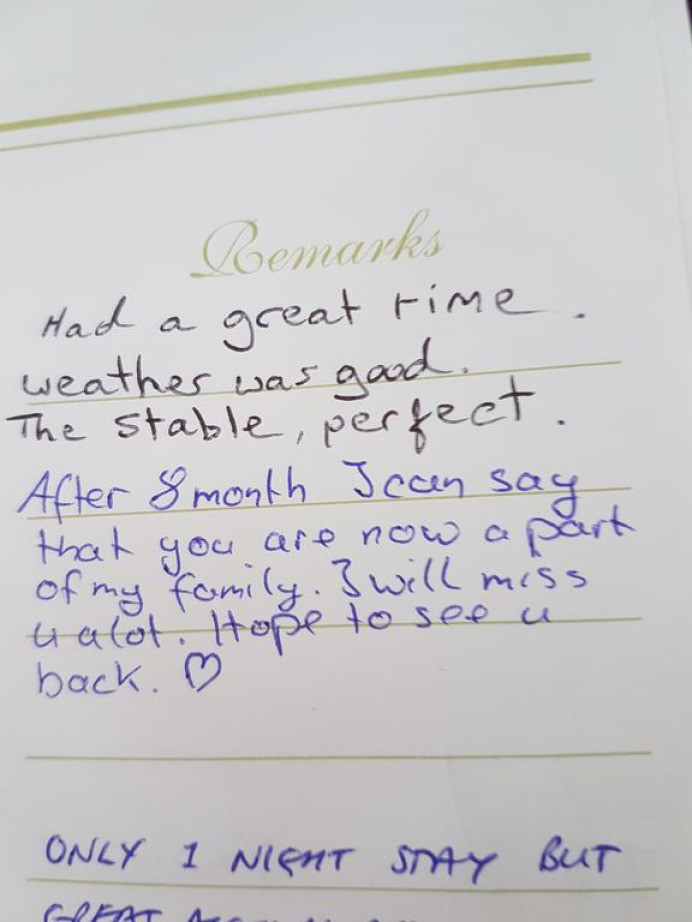 Remarks
Had a great time.
weather was good.
The stable, perfect.
After 8 month I can say
that you are now a part
of my family. I will miss
u a lot. Hope to see u
back. ♡
ONLY 1 NIGHT STAY BUT
GREAT